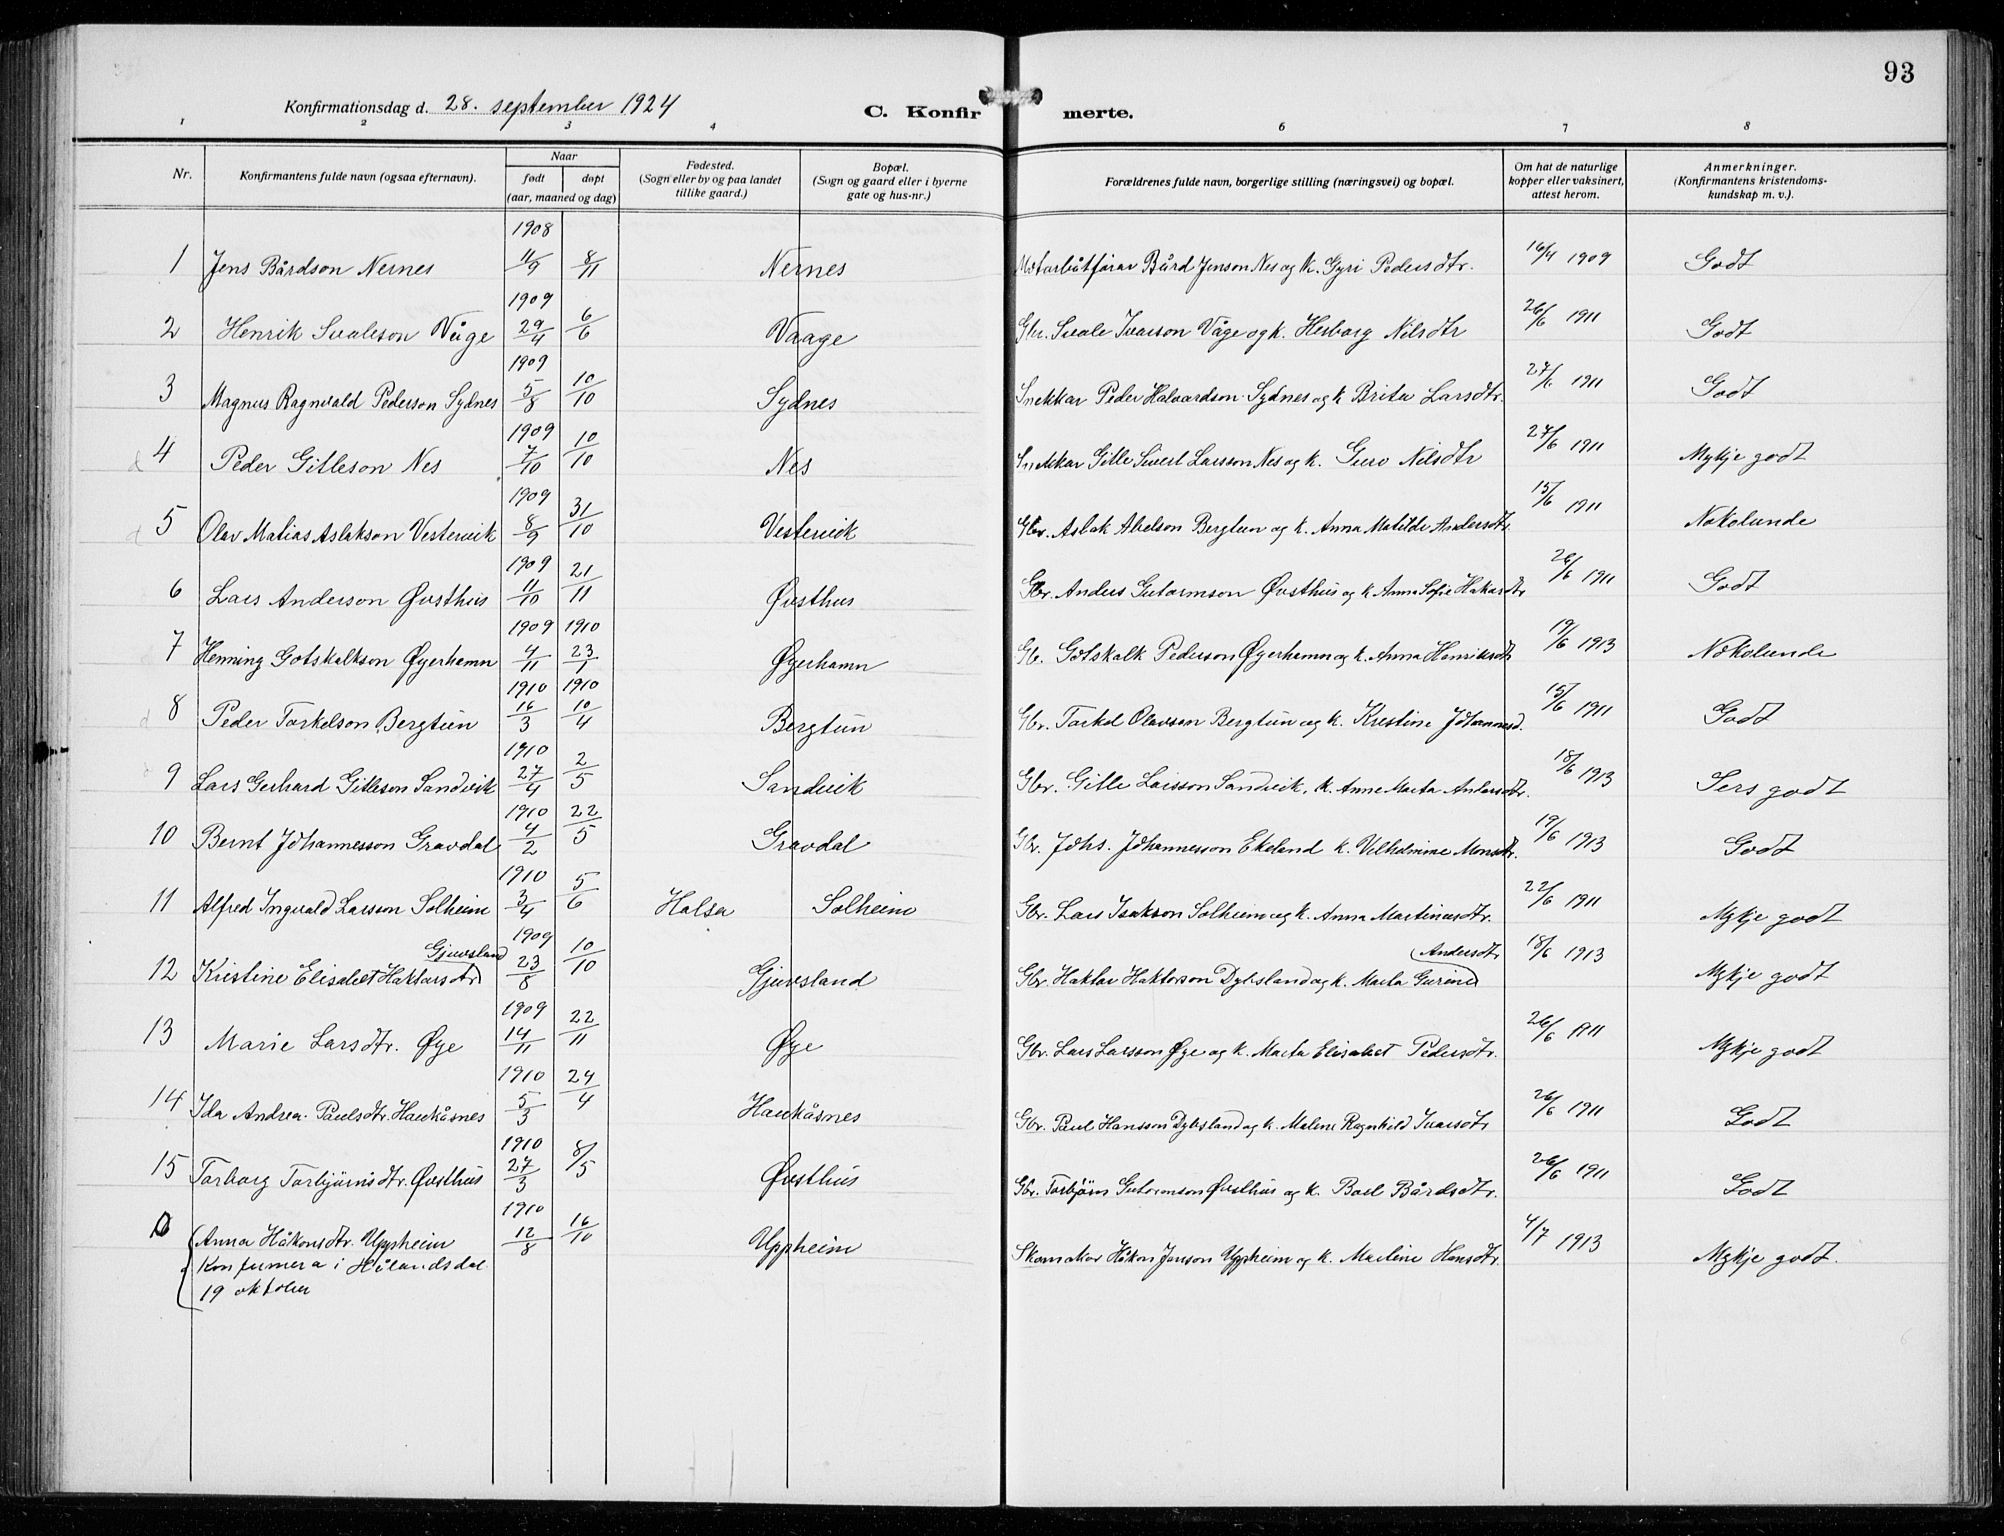 93
Konfirmationsdag d. 28. september 1924
C. Konfirmerte.
1 2 3 4 6 7 8
Nr. Konfirmantens fulde navn (ogsaa efternavn). Naar født døpt (aar, maaned og dag) Fødested. (Sogn eller by og paa landet tillike gaard.) Bopæl. (Sogn og gaard eller i byerne gate og hus-nr.) Forældrenes fulde navn, borgerlige stilling (næringsvei) og bopæl. Om hat de naturlige kopper eller vaksinert, attest herom. Anmerkninger. (Konfirmantens kristendomskundskap m. v.).
1908
1 Jens Bårdson Nernes 11/9 8/11 Nernes Motorbåtförar Bård Jenson Nes og k. Gyri Pedersdtr. 16/4 1909 Godt
1909
2 Henrik Svaleson Våge 29/4 6/6 Vaage Gbr. Svale Ivarson Våge og k. Herborg Nilsdtr 26/6 1911 Godt
1909
3 Magnus Ragnvald Pederson Sydnes 5/8 10/10 Sydnes Snekkar Peder Halvardson Sydnes og k Brita Larsdtr. 27/6 1911 Godt
1909
4 Peder Gitleson Nes 7/10 10/10 Nes Snekkar Gitle Sivert Larsson Nes og k. Guro Nilsdtr 27/6 1911 Mykje godt
1909
5 Olav Matias Aslakson Vestervik 8/9 31/10 Vestervik Gbr. Aslak Abelson Bergtun og k. Anna Matilde Andersdtr. 15/6 1911 Nokolunde
1909
6 Lars Anderson Øvsthus 11/10 21/11 Øvsthus Gbr. Anders Gutormson Øvsthus og k Anna Sofie Hakardtr 26/6 1911 Godt
1909 1910
7 Henning Gotskalkson Øyerhamn 4/11 23/1 Øyerhamn Gb. Gotskalk Pederson Øyerhamn og k. Anna Henriksdtr 19/6 1913 Nokolunde
1910 1910
8 Peder Torkelson Bergtun 16/3 10/4 Bergtun Gbr. Torkel Olavson Bergtun og k. Kristine Johannesd. 15/6 1911 Godt
1910
9 Lars Gerhard Gitleson Sandvik 27/4 2/5 Sandvik Gbr. Gitle Larsson Sandvik, k. Anne Marta Andersdtr. 18/6 1913 Sers godt
1910
10 Bernt Johannesson Gravdal 4/2 22/5 Gravdal Gbr. Johs. Johannesson Ekeland k. Vilhelmine Monsdtr. 19/6 1913 Godt
1910
11 Alfred Ingvald Larsson Solheim 3/4 5/6 Halsa Solheim Gbr. Lars Isakson Solheim og k. Anna Martinusdtr. 22/6 1911 Mykje godt
1909
12 Kristine Elisabet Haktorsdtr Gjuvsland 23/8 10/10 Gjuvsland Gbr. Haktor Haktorson Dybsland og k. Marta Gurine Andersdtr 18/6 1913 Mykje godt
1909
13 Marie Larsdtr. Øye 14/11 22/11 Øye Gbr. Lars Larsson Øye og k. Marta Elisabet Pedersdtr. 26/6 1911 Mykje godt
1910
14 Ida Andrea Paulsdtr. Haukåsnes 5/3 24/4 Haukåsnes Gbr. Paul Hansson Dybsland og k. Malene Ragnhild Ivarsdtr 26/6 1911 Godt
1910
15 Torborg Torbjørnsdtr. Øvsthus 27/3 8/5 Øvsthus Gbr. Torbjørn Gutormson Øvsthus og k. Boel Bårdsdtr. 26/6 1911 Godt
1910
Anna Håkonsdtr. Uppheim 12/8 16/10 Uppheim Skomakar Håkon Janson Uppheim og k. Martine Hansdtr. 4/7 1913 Mykje godt.
Konfirmera i Hålandsdal
19 oktober